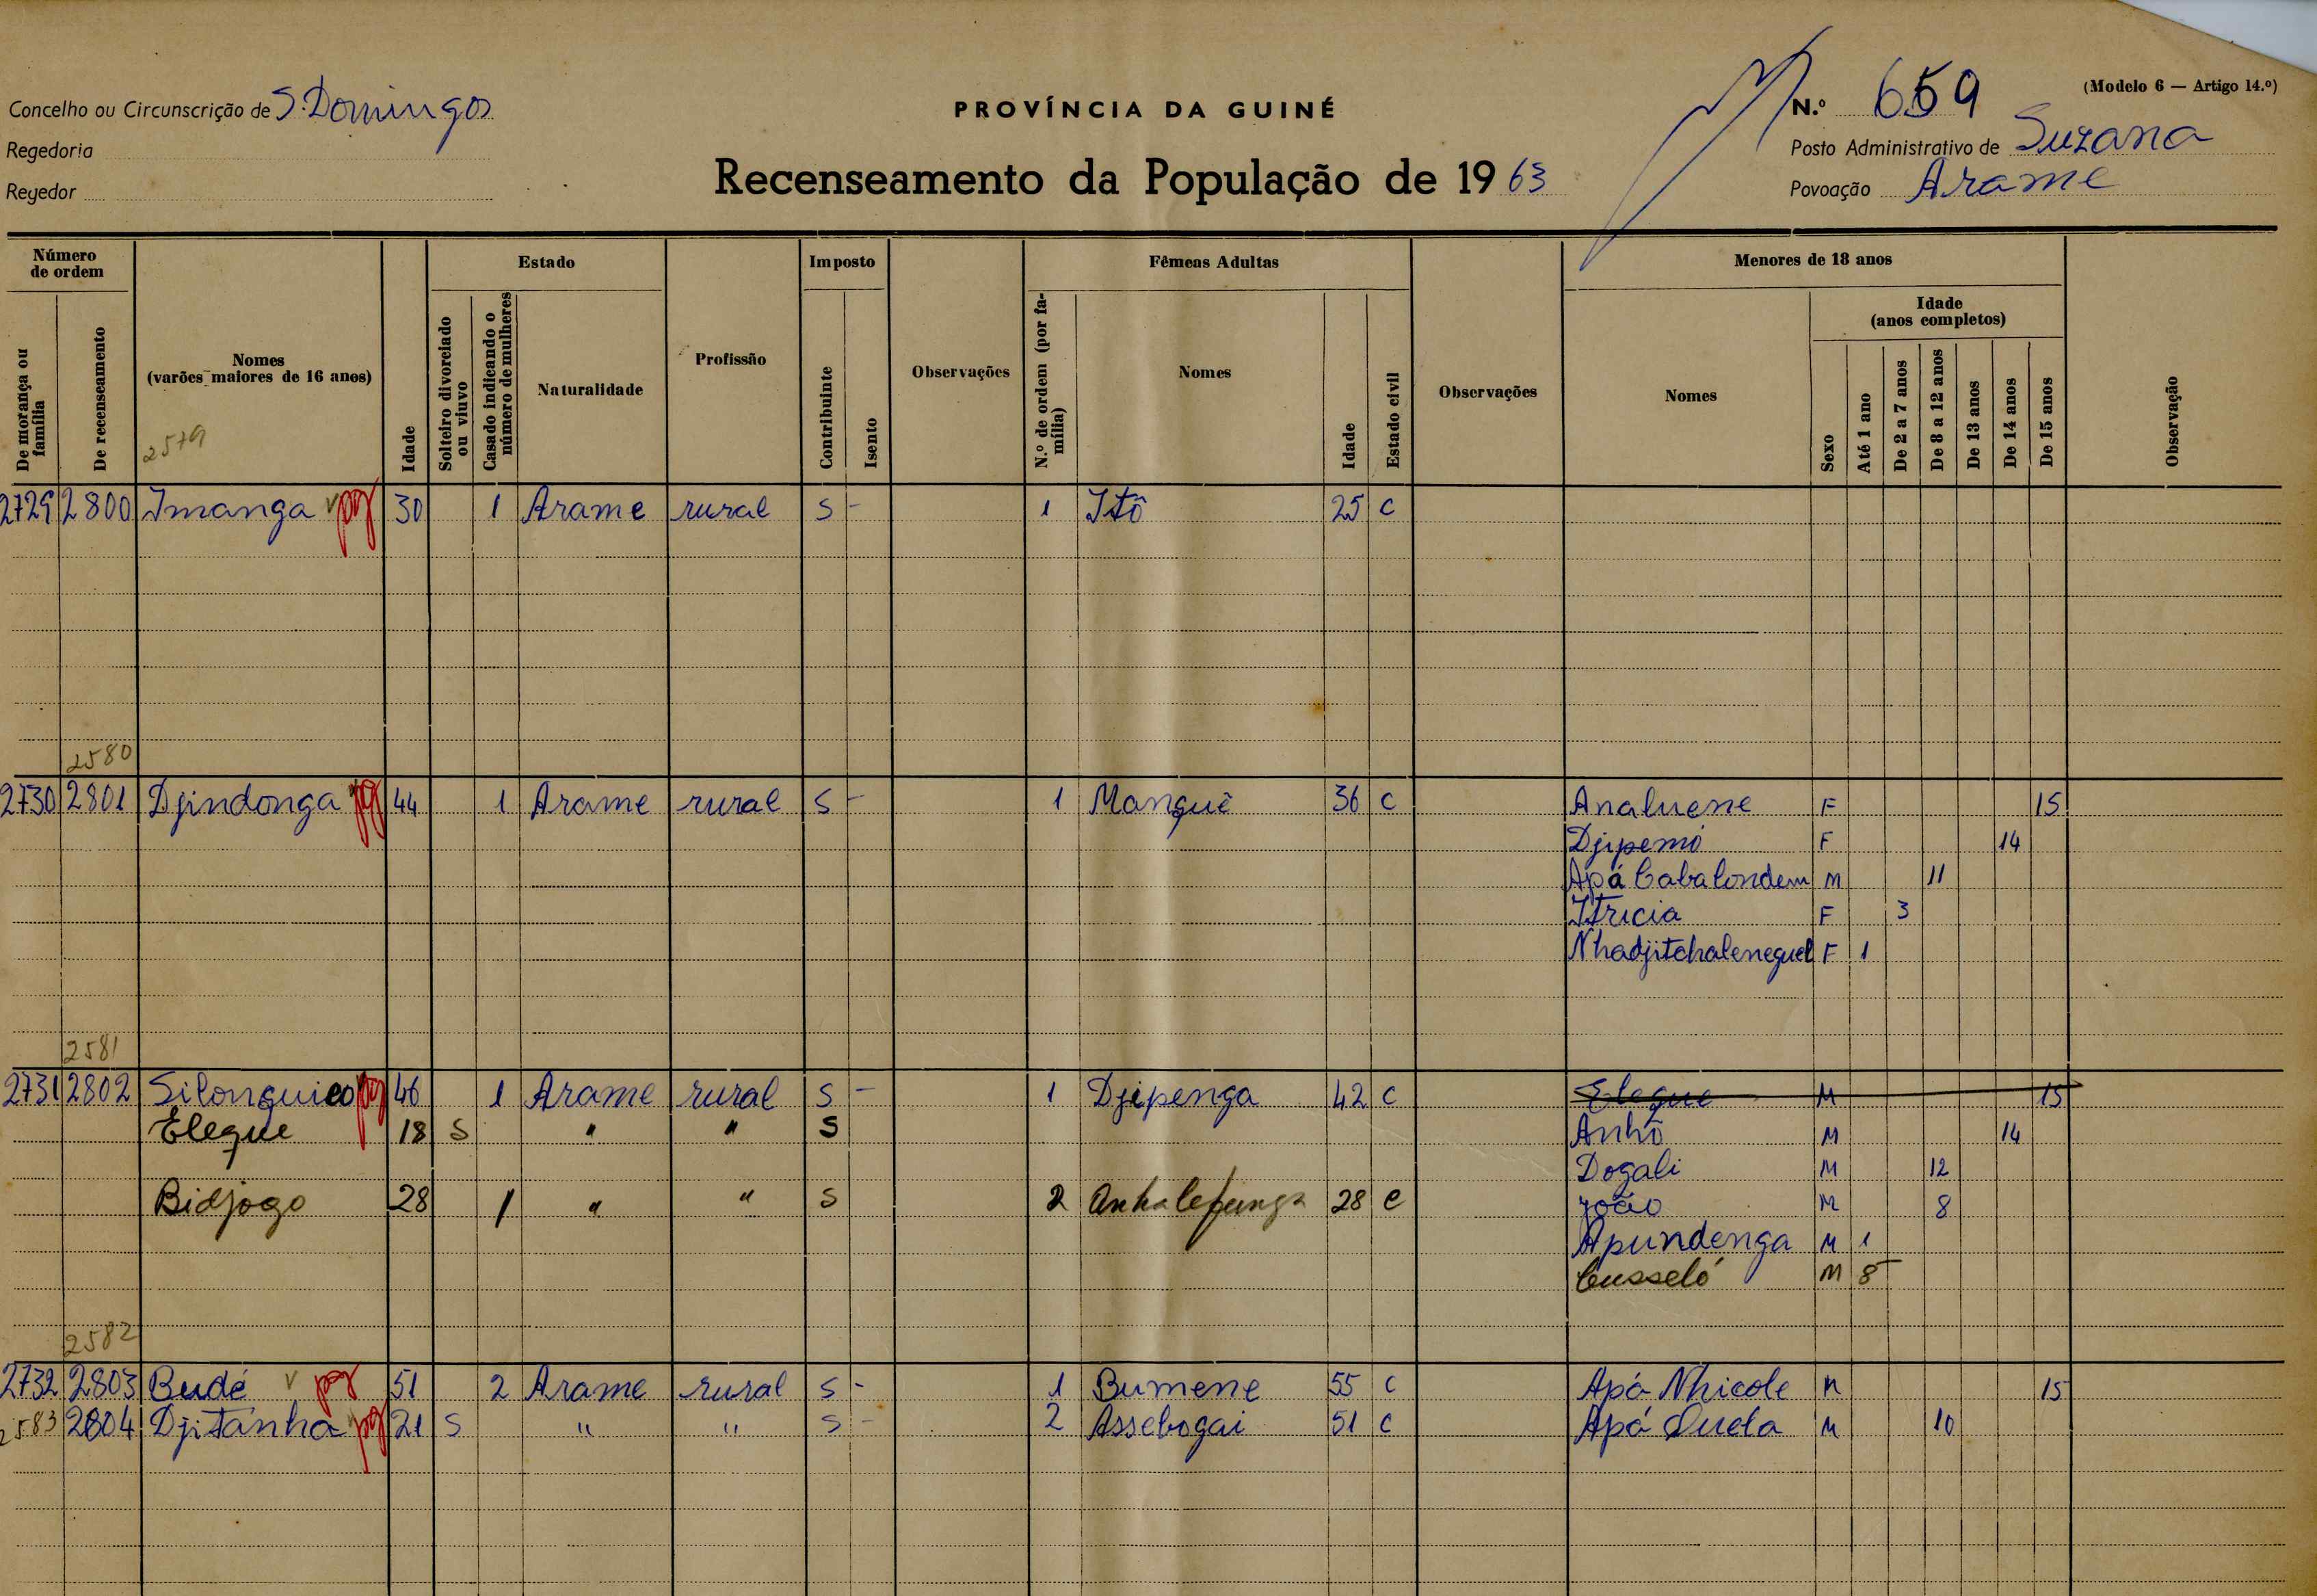 Concelho ou Circunscrição de S. Domingos
Regedoria
Regedor
PROVÍNCIA DA GUINÉ
Recenseamento da População de 19 63
(Modelo 6 — Artigo 14.º)
N.º 659
Posto Administrativo de Suzana
Povoação Arame
Número de ordem
De morança ou família
De recenseamento
Nomes
(varões maiores de 16 anos)
2579
Idade
Estado
Solteiro divorciado ou viuvo
Casado indicando o número de mulheres
Naturalidade
Profissão
Imposto
Contribuinte
Isento
Observações
Fêmeas Adultas
N.º de ordem (por família)
Nomes
Idade
Estado civil
Observações
Menores de 18 anos
Nomes
Sexo
Idade
(anos completos)
Até 1 ano
De 2 a 7 anos
De 8 a 12 anos
De 13 anos
De 14 anos
De 15 anos
Observação
2729 2800 Imanga v pg 30 1 Arame rural s - 1 Itô 25 c
2580
2730 2801 Djindonga pg 44 1 Arame rural s - 1 Manguê 36 c Analuene F 15
Djipemó F 14
Apá Cabalondem M 11
Itricia F 3
Nhadjitchaleneguel F 1
2581
2731 2802 Silonguico pg 46 1 Arame rural s - 1 Djipenga 42 c Elegue M 15
Elegue 18 s " " s Anhô M 14
Dogali M 12
Bidjogo 28 1 " " s 2 28 c João M 8
Apundenga M 1
Cusseló M 8
2582
2732 2803 Budé v pg 51 2 Arame rural s - 1 Bumene 55 c Apá Nhicole M 15
2583 2804 Djitanha pg 21 s " " s - 2 Assebogai 51 c Apá M 10